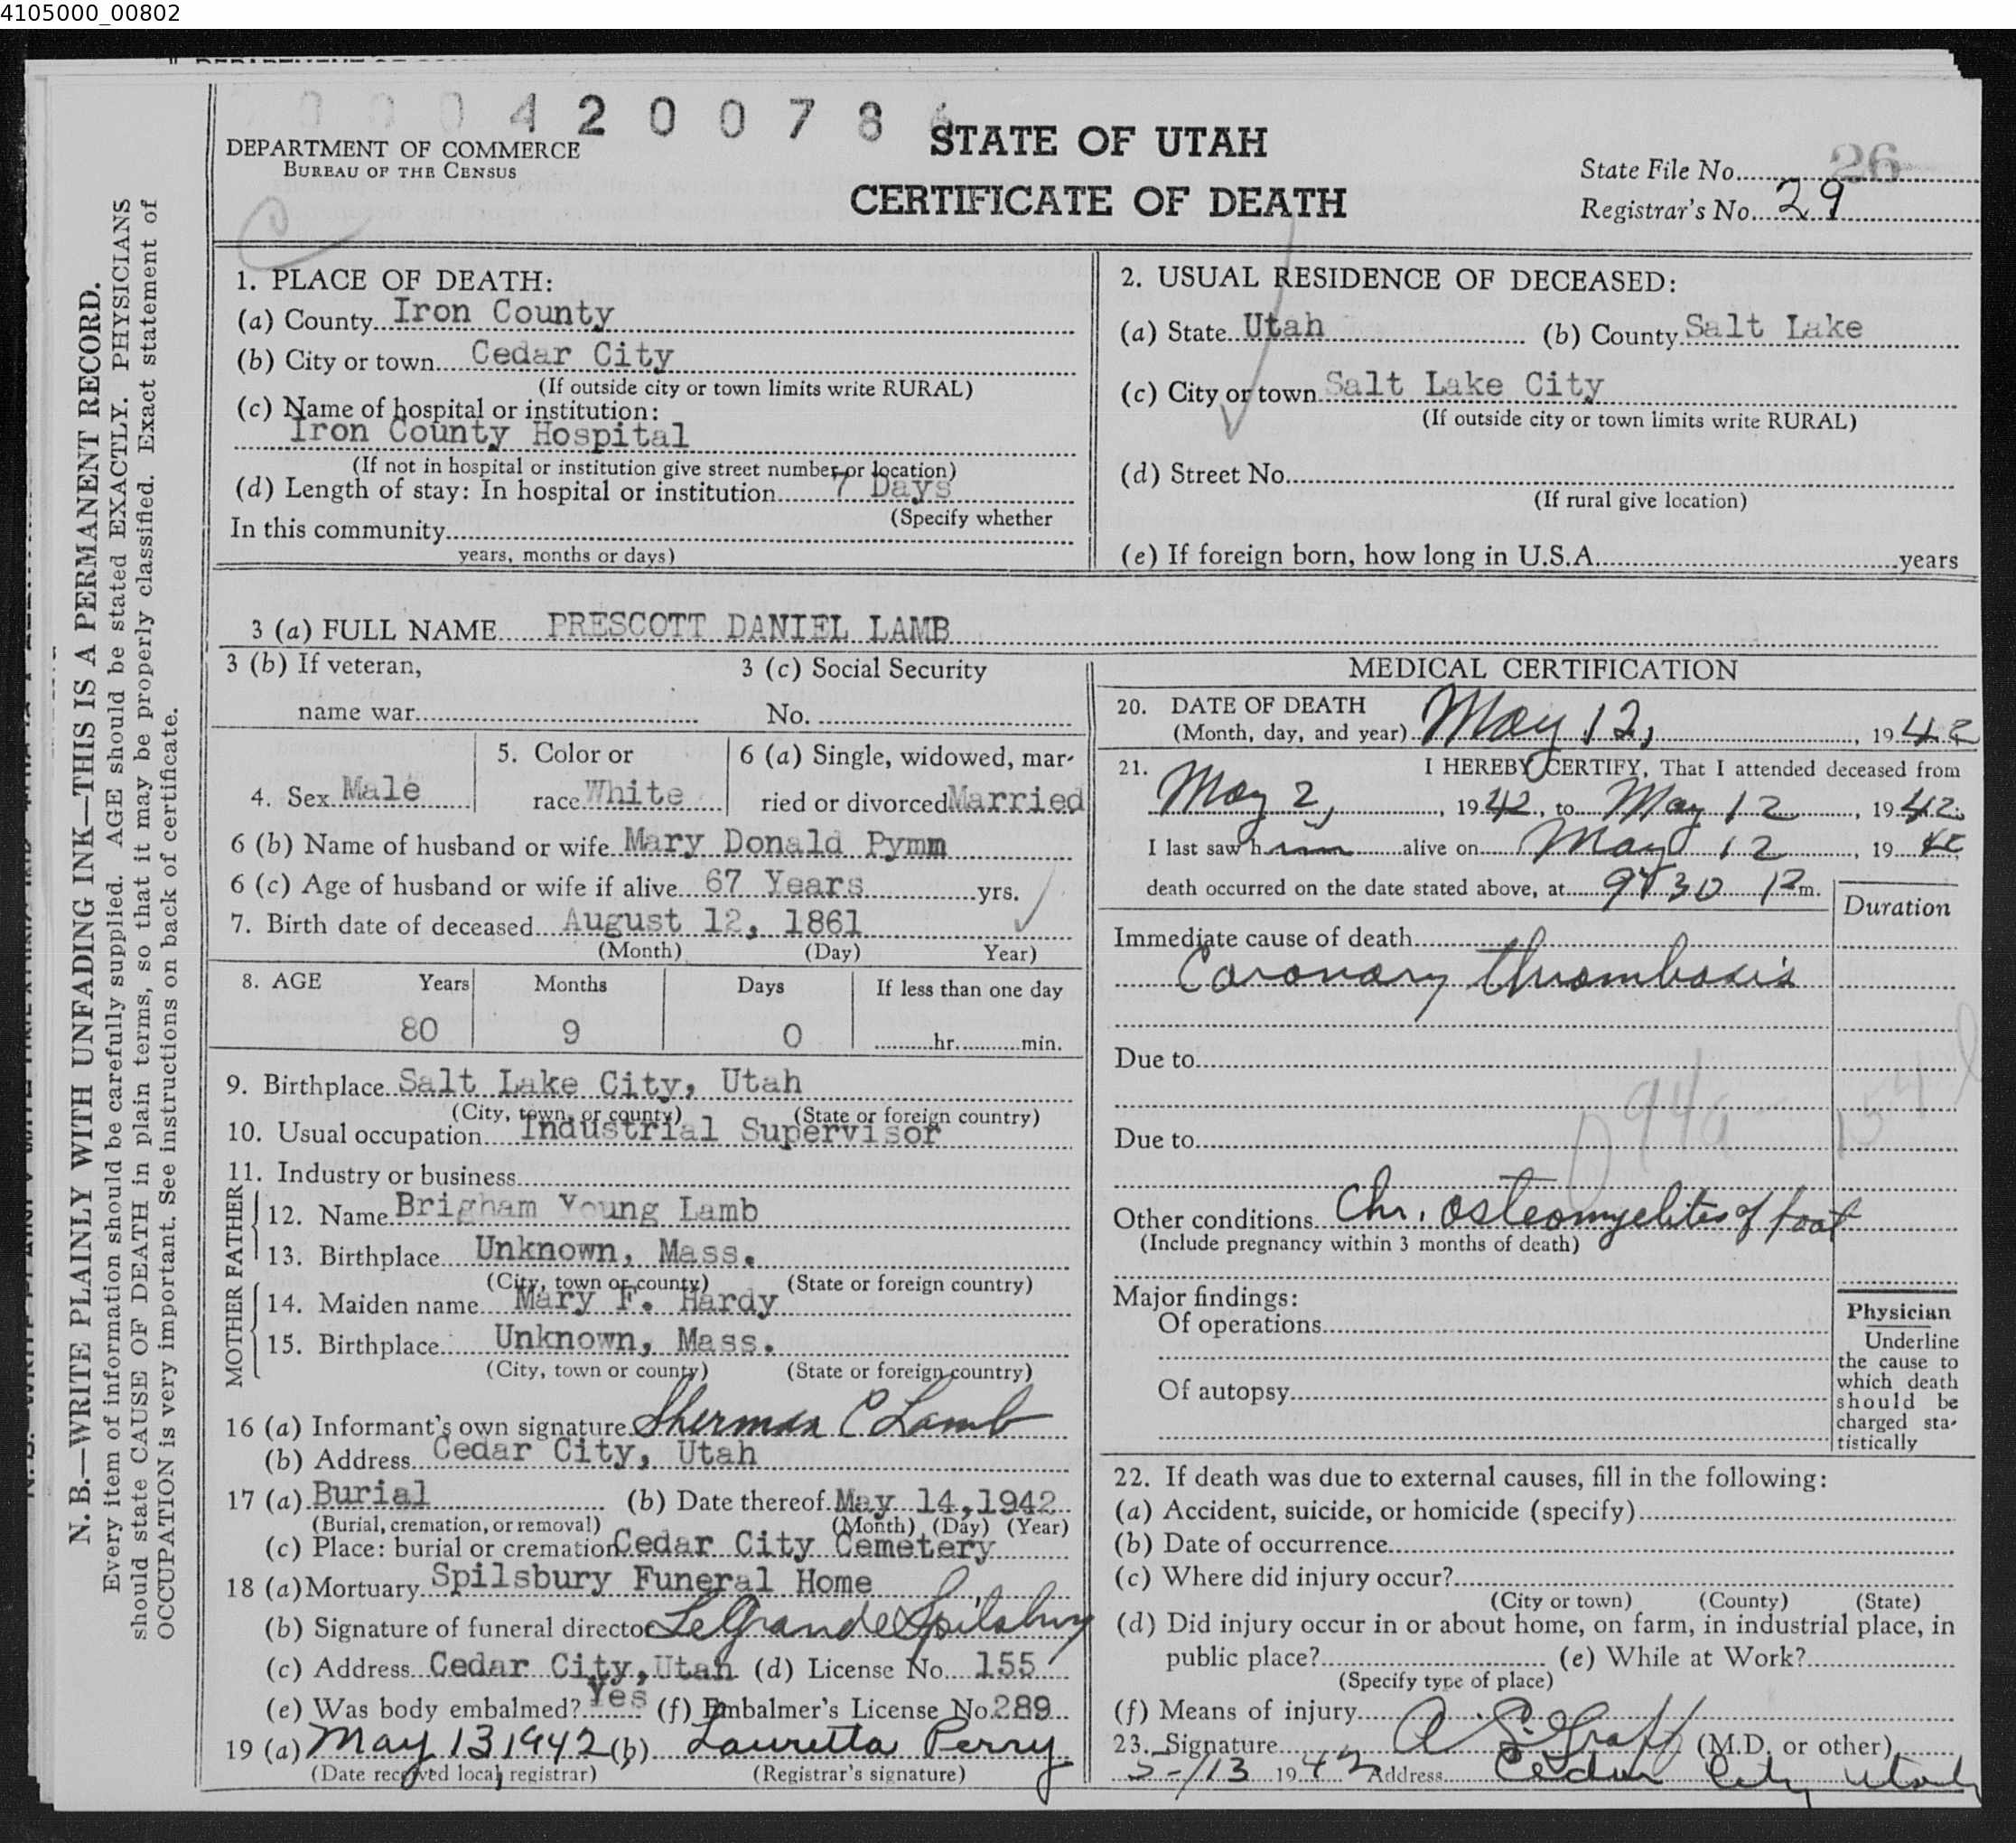 4105000_00802
0 0 0 4 2 0 0 7 8
DEPARTMENT OF COMMERCE
BUREAU OF THE CENSUS
STATE OF UTAH
CERTIFICATE OF DEATH
State File No. 26
Registrar's No. 29
N. B.—WRITE PLAINLY WITH UNFADING INK—THIS IS A PERMANENT RECORD.
Every item of information should be carefully supplied. AGE should be stated EXACTLY. PHYSICIANS
should state CAUSE OF DEATH in plain terms, so that it may be properly classified. Exact statement of
OCCUPATION is very important. See instructions on back of certificate.
1. PLACE OF DEATH:
(a) County Iron County
(b) City or town Cedar City
(If outside city or town limits write RURAL)
(c) Name of hospital or institution:
Iron County Hospital
(If not in hospital or institution give street number or location)
(d) Length of stay: In hospital or institution 7 Days
(Specify whether
In this community
years, months or days)
2. USUAL RESIDENCE OF DECEASED:
(a) State Utah (b) County Salt Lake
(c) City or town Salt Lake City
(If outside city or town limits write RURAL)
(d) Street No.
(If rural give location)
(e) If foreign born, how long in U.S.A. years
3 (a) FULL NAME PRESCOTT DANIEL LAMB
3 (b) If veteran,
name war
3 (c) Social Security
No.
4. Sex Male
5. Color or
race White
6 (a) Single, widowed, mar-
ried or divorced Married
6 (b) Name of husband or wife Mary Donald Pymm
6 (c) Age of husband or wife if alive 67 Years yrs.
7. Birth date of deceased August 12, 1861
(Month) (Day) Year)
8. AGE Years Months Days If less than one day
80 9 0 hr. min.
9. Birthplace Salt Lake City, Utah
(City, town, or county) (State or foreign country)
10. Usual occupation Industrial Supervisor
11. Industry or business
FATHER
12. Name Brigham Young Lamb
13. Birthplace Unknown, Mass.
(City, town or county) (State or foreign country)
MOTHER
14. Maiden name Mary F. Hardy
15. Birthplace Unknown, Mass.
(City, town or county) (State or foreign country)
16 (a) Informant's own signature Sherman C Lamb
(b) Address Cedar City, Utah
17 (a) Burial (b) Date thereof May 14, 1942
(Burial, cremation, or removal) (Month) (Day) (Year)
(c) Place: burial or cremation Cedar City Cemetery
18 (a) Mortuary Spilsbury Funeral Home
(b) Signature of funeral director LeGrande Spilsbury
(c) Address Cedar City, Utah (d) License No. 155
(e) Was body embalmed? Yes (f) Embalmer's License No. 289
19 (a) May 13 1942 (b) Lauretta Perry
(Date received local registrar) (Registrar's signature)
MEDICAL CERTIFICATION
20. DATE OF DEATH
(Month, day, and year) May 12, 1942
21. I HEREBY CERTIFY, That I attended deceased from
May 2, 1942, to May 12, 1942
I last saw him alive on May 12, 1942
death occurred on the date stated above, at 9 30 Pm.
Duration
Immediate cause of death
Coronary thrombosis
Due to
94a 154
Due to
Other conditions Chr. osteomyelites of foot
(Include pregnancy within 3 months of death)
Major findings:
Of operations
Of autopsy
Physician
Underline
the cause to
which death
should be
charged sta-
tistically
22. If death was due to external causes, fill in the following:
(a) Accident, suicide, or homicide (specify)
(b) Date of occurrence
(c) Where did injury occur?
(City or town) (County) (State)
(d) Did injury occur in or about home, on farm, in industrial place, in
public place? (e) While at Work?
(Specify type of place)
(f) Means of injury
23. Signature A S Graff (M.D. or other)
5-/13 1942 Address Cedar City Utah